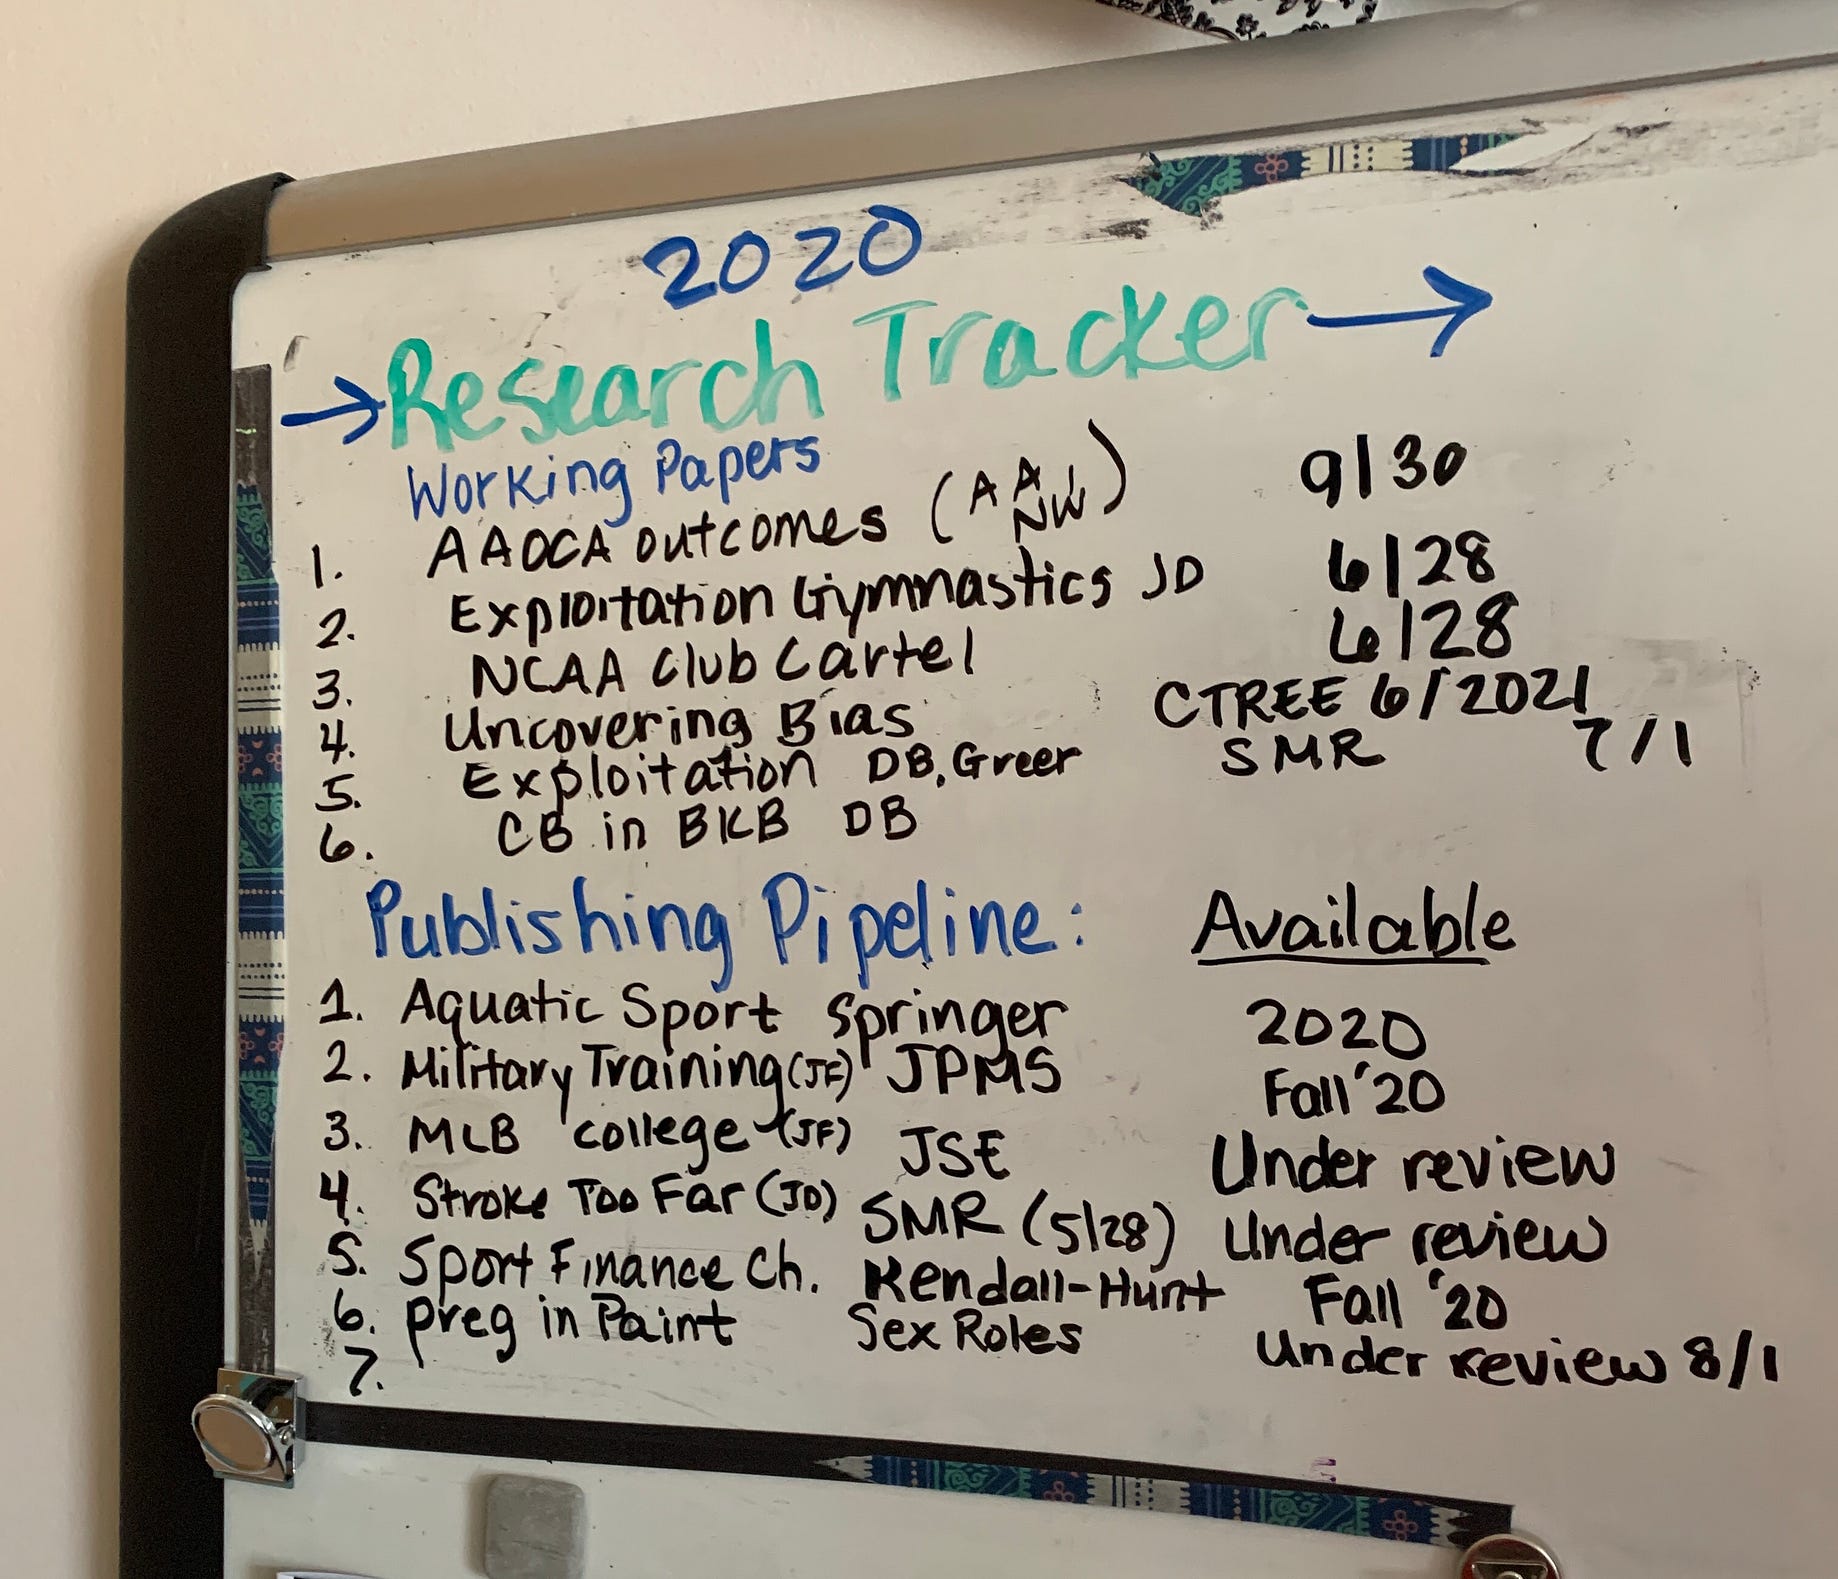 2020
→ Research Tracker →
Working Papers
1. AAOCA outcomes (AA, NW) 9/30
2. Exploitation Gymnastics JD 6/28
3. NCAA Club Cartel 6/28
4. Uncovering Bias CTREE 6/2021
5. Exploitation DB, Greer SMR 7/1
6. CB in BKB DB
Publishing Pipeline: Available
1. Aquatic Sport Springer 2020
2. Military Training (JF) JPMS Fall '20
3. MLB college (JF) JSE Under review
4. Stroke Too Far (JD) SMR (5/28) Under review
5. Sport Finance Ch. Kendall-Hunt Fall '20
6. Preg in Paint Sex Roles Under review 8/1
7.